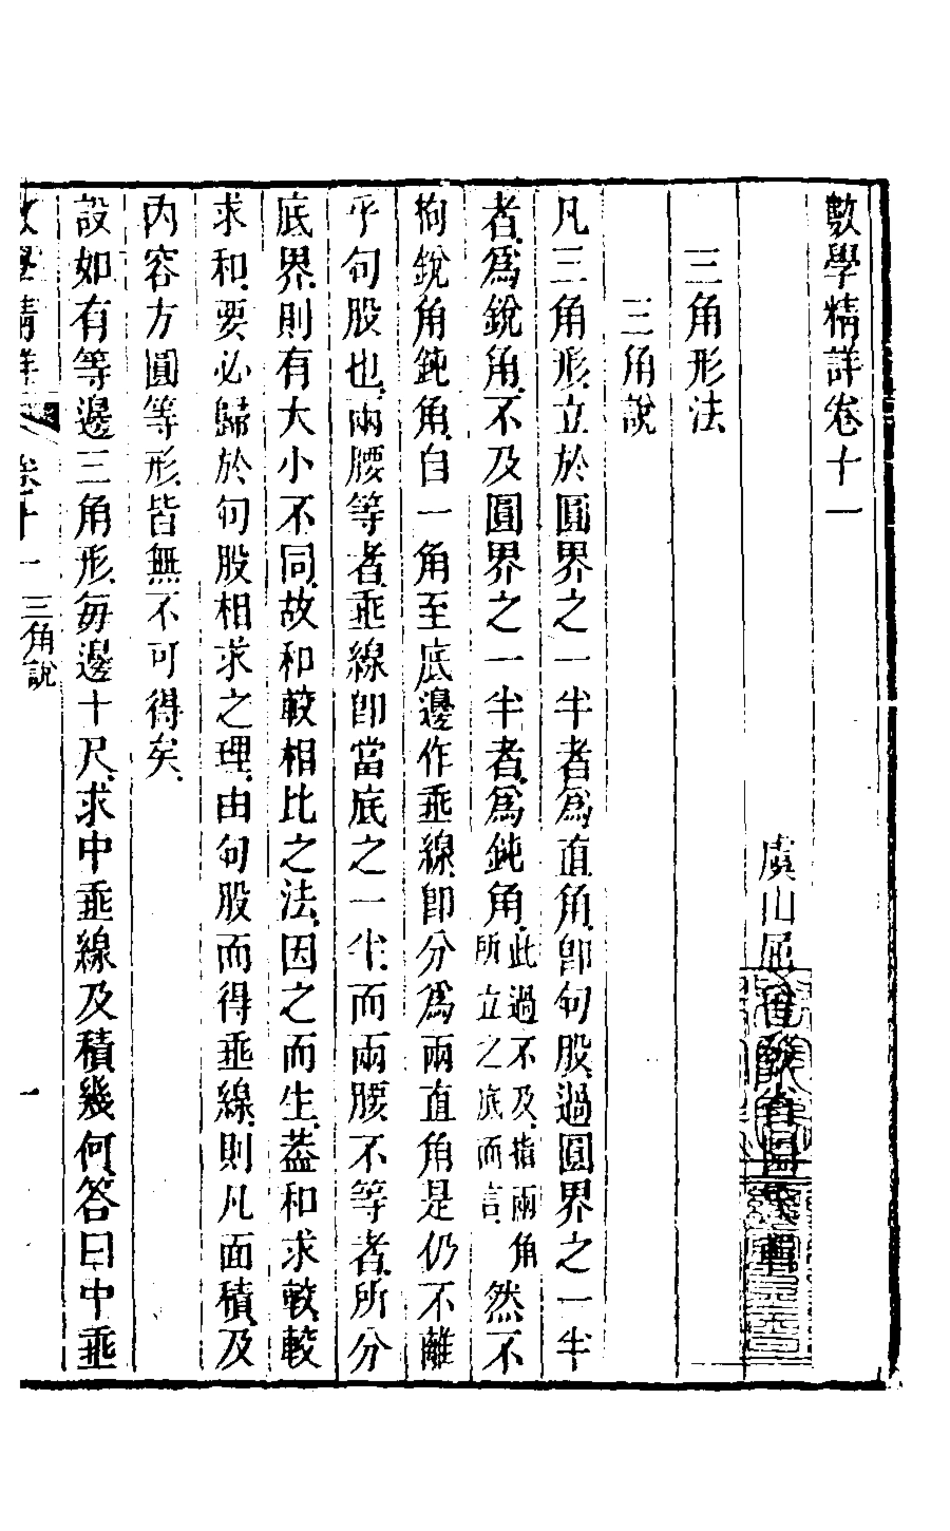 數學精詳卷十一
虞山屈曾發省園氏輯
三角形法
三角說
凡三角形立於圓界之一半者為直角即句股過圓界之一半
者為銳角不及圓界之一半者為鈍角此過不及指兩角所立之底而言然不
拘銳角鈍角自一角至底邊作垂線即分為兩直角是仍不離
乎句股也兩腰等者垂線即當底之一半而兩腰不等者所分
底界則有大小不同故和較相比之法因之而生葢和求較較
求和要必歸於句股相求之理由句股而得垂線則凡面積及
內容方圓等形皆無不可得矣
設如有等邊三角形每邊十尺求中垂線及積幾何答曰中垂
數學精詳 卷十一 三角說 一